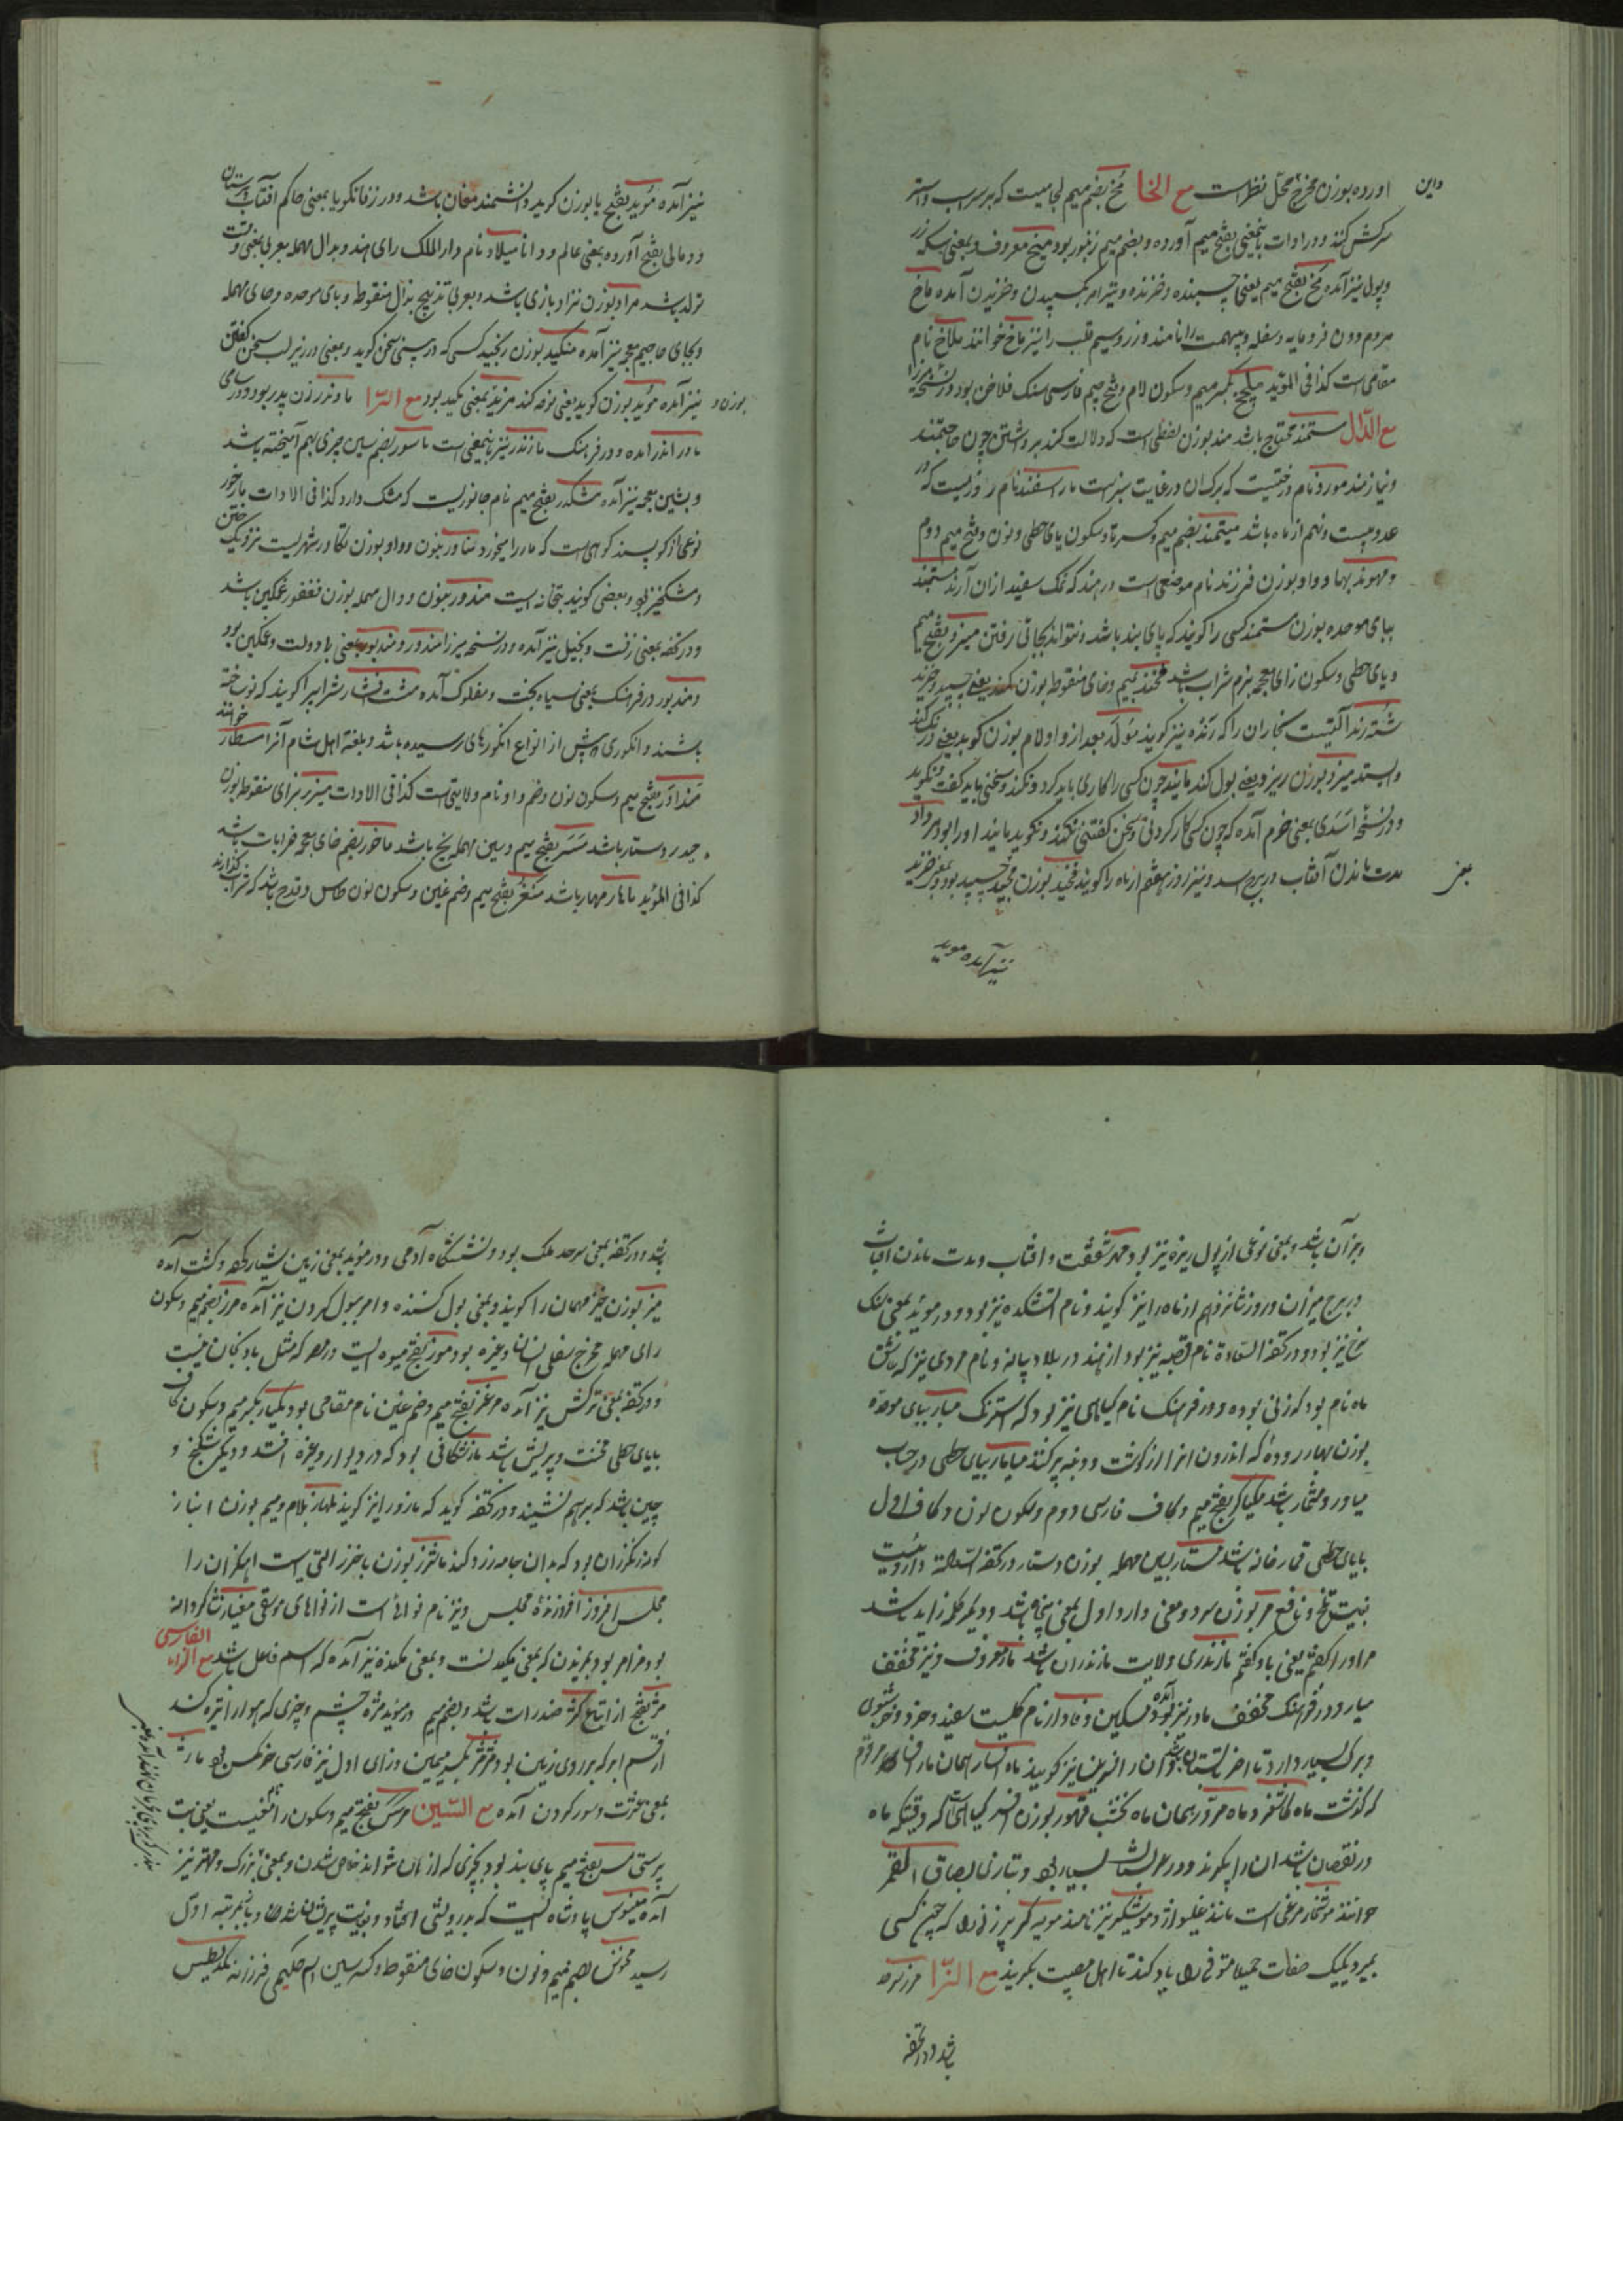 اورده بوزن مخرج محل نظر است مع الخا مخ بضم میم لجامیست که بر سر اسب و استر
سرکش کنند و در ادات بنمعنی بفتح میم آورده و بضم میم زنبور بود میخ معروف و بمعنی سکه زر
و پول نیز آمده مخ بفتح میم یعنی چسپنده و خزنده و نیز امر بچسپیدن و خزیدن آمده ماخ
مردم دون فرومایه و سفله و بیهمت را نامند و زر و سیم قلب را نیز ماخ خوانند ملاخ نام
مقامی است کذا فی المؤید میلخج بکسر میم و سکون لام و فتح جیم فارسی سنک فلاخن بود و در نسخه میرزا
مع الدال مستمند محتاج باشد مند بوزن لفظی است که دلالت کند بر داشتن چون حاجتمند
و نیازمند مورد نام درختیست که برک ان در غایت سبزیست مار اسفند نام روزیست که در
عدد بیست و نهم از ماه باشد میتمند بضم میم و کسر تا و سکون یای حطی و نون و فتح میم دوم
و مهوند بها و واو بوزن فرزند نام موضعی است در هند که نمک سفید ازان آرند مستبند
ببای موحده بوزن مستمند کسی را کویند که پای بند باشد و نتواند بجائی رفتن میزد بفتح میم
و یای حطی و سکون زای معجمه بزم شراب باشد مخند بمیم و خای منقوط بوزن کمند یعنی چسپید و خزید
شترند آلتیست نجاران را که رنده نیز کویند مولد بعد از واو لام بوزن کوید یعنی درنک کند
و ایستد میزد بوزن ریزد یعنی بول کند مانید چون کسی را کاری باید کرد و نکند و سخنی باید کفت و نکوید
و در نسخه اسدی بمعنی جرم آمده که چون کسی کار کردنی و سخن کفتنی نکند و نکوید مانید اورا بود مرداد
مدت ماندن آفتاب در برج اسد و نیز روز هفتم از ماه را کویند مخید بوزن مجید چسپید بود و بمعنی خزید
نیز آمده موید
نیز آمده مؤبد بفتح با بوزن کوید دانشمند مغان باشد و در زفانکویا بمعنی حاکم آفتاب پرستان
و در عالی بفتح آورده بمعنی عالم و دانا میلاد نام دار الملک رای هند و بدال مهمله بعربی بمعنی وقت
تولد باشد مراد بوزن نژاد بازی باشد و بعربی تذبیح بذال منقوط و بای موحده و حای مهمله
و بجای حا جیم معجمه نیز آمده منکید بوزن رنجید کسی که در بینی سخن کوید و بمعنی در زیر لب سخن کفتن
نیز آمده موید بوزن کوید یعنی نوحه کند مزید بمعنی مکید بود مع الرا مادندر زن پدر بود و در سامی
مادر اندر آمده و در فرهنک مازندر نیز بنمعنی است ماسور بضم سین چیزی بهم آمیخته باشد
و بشین معجمه نیز آمده مشکدر بفتح میم نام جانوریست که مشک دارد کذا فی الادات مارخور
نوعی از کوسپند کوهی است که مار را میخورد مناور بنون و واو بوزن تکاور شهریست نزدیک ختن
و مشکخیز بود و بعضی کویند بتخانه است مندور بنون و دال مهمله بوزن فغفور غمکین باشد
و در تحفه بمعنی زفت و بخیل نیز آمده و در نسخه میرزا مندور و مندبور بمعنی بادولت و غمکین بود
و مندبور در فرهنک بمعنی سیاه بخت و مفلوک آمده مشت افشار شرابیرا کویند که نوساخته
باشند و انکوری پیش از انواع انکورهای رسیده باشد و بلغة اهل شام آنرا مسطار خوانند
منداور بفتح میم و سکون نون و ضم واو نام ولایتی است کذا فی الادات میزر بزای منقوط بوزن
حیدر دستار باشد مسر بفتح میم و سین مهمله یخ باشد ماخور بضم خای معجمه خرابات باشد
کذا فی المؤید ماهار مهار باشد منغر بفتح میم و ضم غین و سکون نون طاس و قدح باشد که شراب کذارند
و بزان باشد و بمعنی نوعی از پول ریزه نیز بود مهر شفقت و افتاب و مدت ماندن افتاب
در برج میزان و روز شانزدهم از ماه را نیز کویند و نام اتشکده نیز بود و در موید بمعنی سنک
سرخ نیز بود و در تحفة السعادة نام قصبه نیز بود از هند در بلاد پیاله و نام مردی نیز که عاشق
ماه نام بود که زنی بوده و در فرهنک نام کیاهی نیز بود که استرنک مبار ببای موحده
بوزن بهار روده که اندرون انرا از کوشت و دنبه پر کنند میامار بیای حطی در حساب
میاور و مشمار باشد منکیاکر بفتح میم و کاف فارسی دوم و سکون نون و کاف اول
بایای حطی قمارخانه باشد مستار بسین مهمله بوزن دستار در تحفه است داروئیست
نیست تلخ و نافع مر بوزن سر دو معنی دارد اول بمعنی پنجاه باشد و دیکر کلمه زاید باشد
مر اورا کفتم یعنی باو کفتم مازندری ولایت مازندران باشد مار معروف و نیز مخفف
میار و در فرهنک مخفف مادر نیز آمده
و برک بسیار دارد تا اخر تابستان
که کذشت ماه کاشغر و ماه مزور همان ماه نخشب مهور بوزن کیاهی است که وقتیکه ماه
در نقصان باشد ان را بکونند و بسیار بود و بتازی بصاق القمر
خوانند موشخوار مرغی است مانند غلیواژ و موشکیر نیز نامند مویه کر پیر زنی را که چون کسی
بمیرد یکیک صفات حمیده متوفی را یاد کند تا اهل مصیبت بکریند مع الزا مرز سرحد
باشد و در تحفه
باشد و در تحفه بمعنی سرحد ملک بود و نشستگاه آدمی و در موید بمعنی زمین شیار کرده و کشت آمده
میز بوزن خیز مهمان را کویند و بمعنی بول کننده و امر ببول کردن نیز آمده مرز بضم میم و سکون
رای مهمله مخرج سفلی انسان و غیره بود موز بفتح میوه ایست در مصر که مثل بادنجان نیست
و در تحفه بمعنی ترکش نیز آمده مرغز بفتح میم و ضم غین نام مقامی بود مکیاز بکسر میم و سکون کاف
بایای حطی مخنث و بیریش باشد ماز شکافی بود که در دیوار و غیره افتد و دیکر شکنج و
چین باشد که بر هم نشیند و در تحفه کوید که مازو را نیز کویند ملماز بلام و میم بوزن انباز
لون رنکرزان بود که بدان جامه رزد کنند ماشوز بوزن باخرز التی است اهنکران را
مجلس افروز افروزندۀ مجلس و نیز نام نوائی است از نواهای موسقی
بود مزامر بود بمزیدن که بمعنی مکیدنست و بمعنی مکنده نیز آمده که اسم فاعل باشد مع الزاء الفارسی
مژ بفتح از اتباع کژ ضد راست باشد و بضم میم در موید مژه چشم و چیزی که هوا را تیره کند
از قسم ابر که بر روی زمین بود مژمژ بکسر میمین و زای اول نیز فارسی خرمکس بود ماژ
بمعنی عشرت و سور کردن آمده مع السین مرس بفتح میم و سکون را
پرستی مس بفتح میم پای بند بود بچیزی که از ان نتوانند خلاص شدن و بمعنی بزرک و مهتر نیز
آمده مینوس پادشاه ایست که بدرویشی افتاد و بغایت پریشان شد و باز بمرتبه اول
رسید مخنس بضم میم و نون و سکون خای منقوط و کسر سین اسم حکیمی فرزانه مکدیطیس